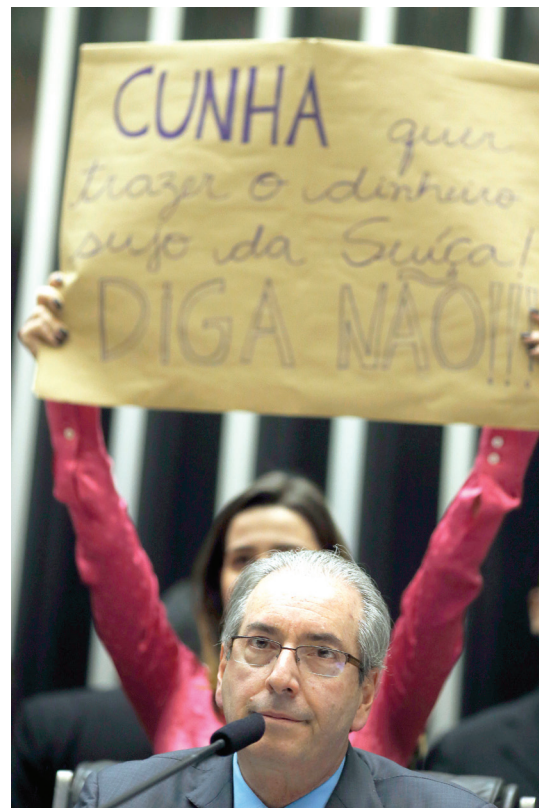 CUNHA quer
trazer o dinheiro
sujo da Suíça!
DIGA NÃO!!!!